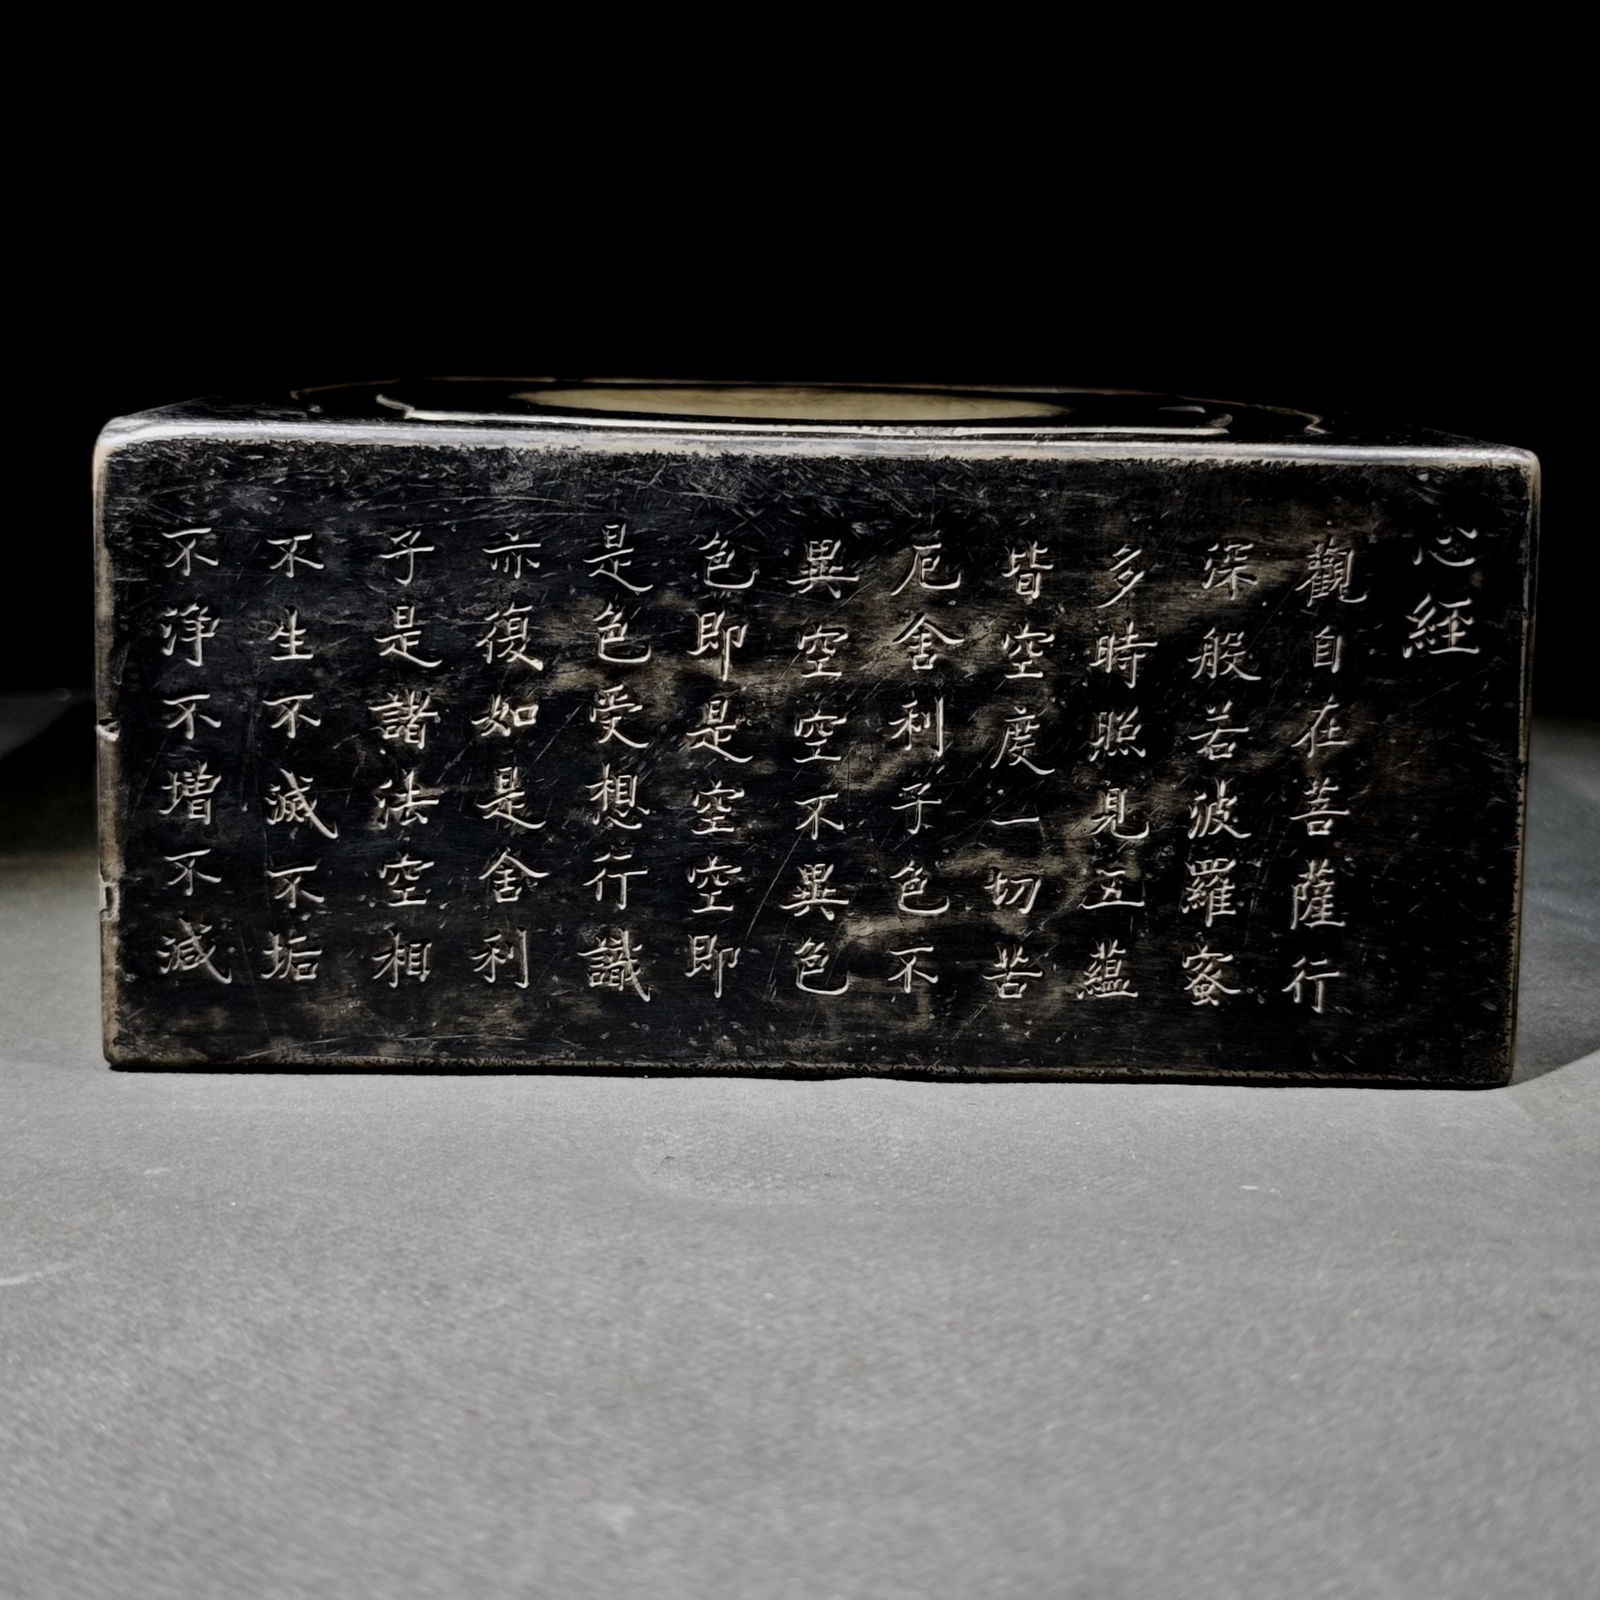 心経
觀自在菩薩行
深般若波羅蜜
多時照見五蘊
皆空度一切苦
厄舍利子色不
異空空不異色
色即是空空即
是色受想行識
亦復如是舍利
子是諸法空相
不生不滅不垢
不淨不增不減